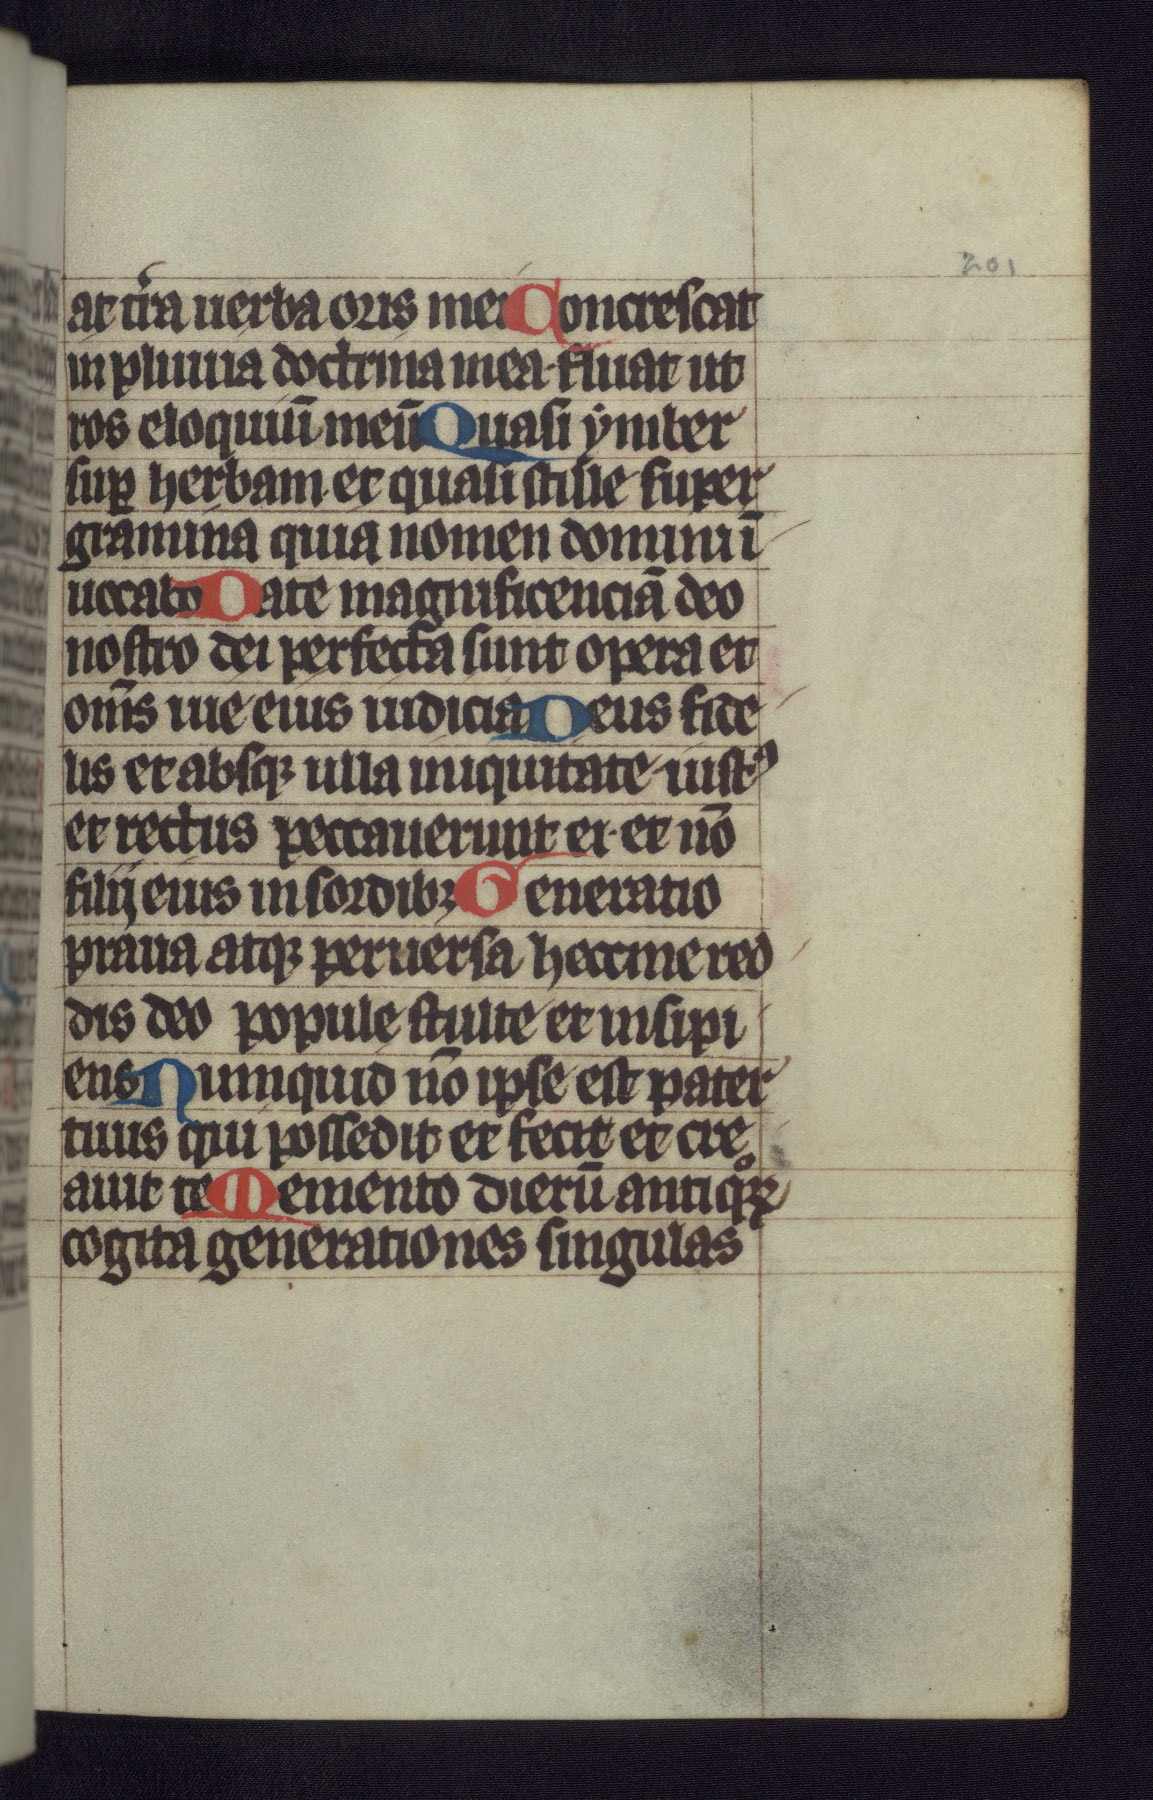 201
at tr̄a uerba oris mei Concrescat
in pluuia doctrina mea fluat ut
ros eloquiū meū Quasi ymber
suꝑ herbam et quasi stille super
gramina quia nomen domini ī
uocabo Date magnificenciā deo
nostro dei perfecta sunt opera et
om̄s uie eius iudicia Deus fide
lis et absqꝫ ulla iniquitate iustꝰ
et rectus peccauerunt ei et nō
filij eius in sordibꝫ Generatio
praua atqꝫ peruersa heccine red
dis deo popule stulte et insipi
ens Numquid nō ipse est pater
tuus qui possedit et fecit et cre
auit te Memento dierū antiqͦꝝ
cogita generationes singulas